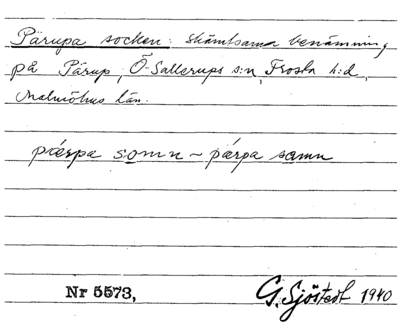 Pärupa socken: skämtsam benämning
på Pärup, Ö. Sallerups s:n, Frosta h:d,
Malmöhus län.
pæspa somn ~ pærpa samn
Nr 5573, G. Sjöstedt 1940